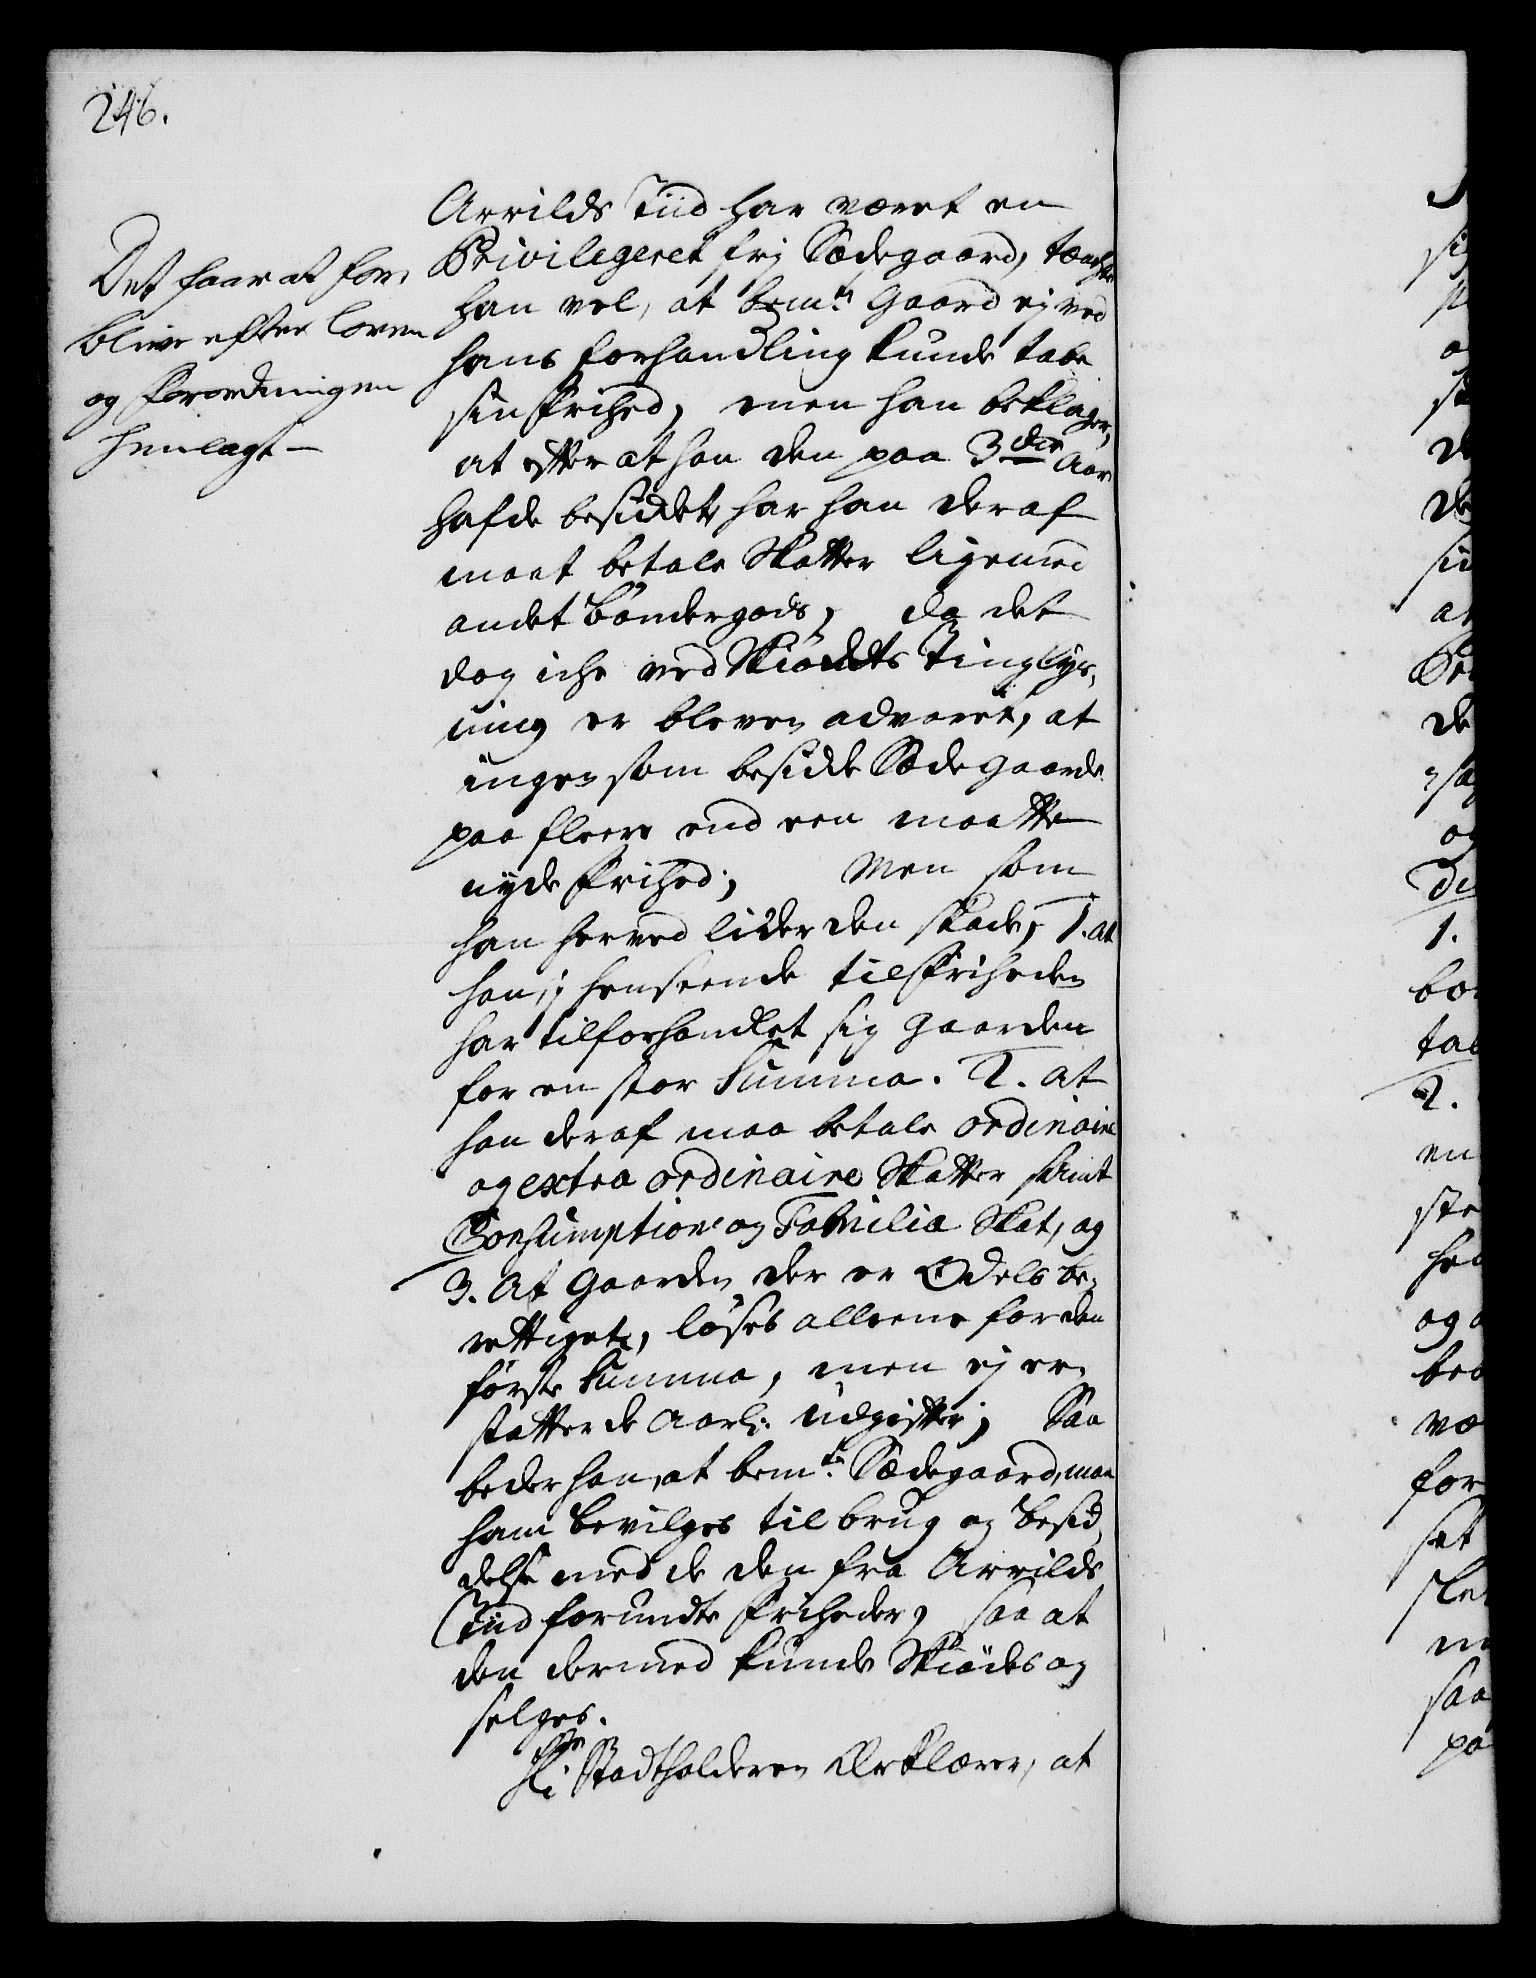 246.
Det faar at for,
blive efter loven
og forordningen
henlagt –
Arrilds Tiid har været en
Privilegeret frj Sædegaard, tænchte
han vel, at bemte Gaard ej ved
hans forhandling kunde tabe
sin frihed, men han beklager,
at efter at han den paa 3die Aar
hafde besiddet, har han deraf
maat betale Skatter ligemed
andet bøndergods, da det
dog iche ved Skiødets Tinglys,
ning er bleven advaret, at
ingen som besidde Sædegaarde
paa fleere end een maatte
nyde frihed; Men som
han herved lider den skade, 1. at
han, j henseende til friheden
har tilforhandlet sig Gaarden
for en stor Summa. 2. at
han deraf maa betale ordinaire
og extra ordinaire Skatter samt
Consumption og Familie Skat, og
3. At Gaarden der er Odels be,
rettiget, løses alleene for den
første Summa, men ej er,
statter de Aarl: udgifter; Saa
beder han, at bemte Sædegaard, maa
ham bevilges til brug og besid,
delse med de den fra Arrilds
Tiid forundte friheder, saa at
den dermed kunde Skiødes og
selges.
Stadtholderen Erklærer, at